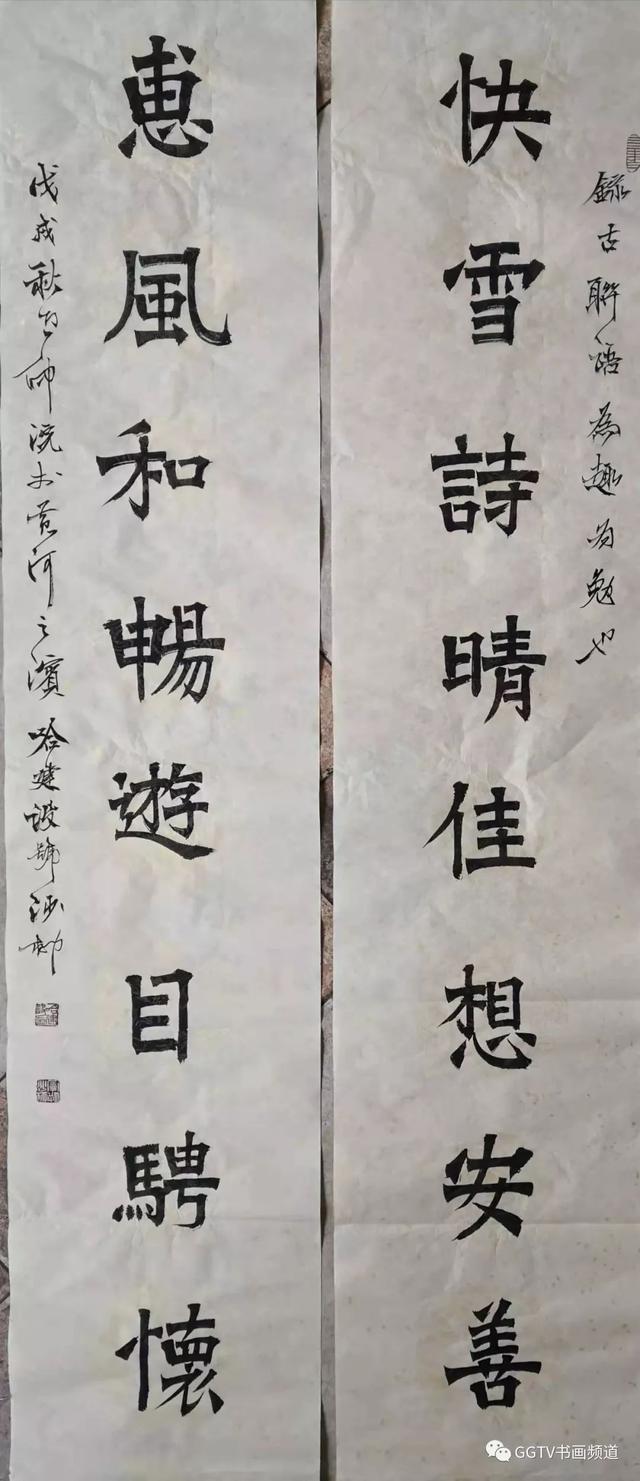 錄古聯語為趣為勉也
快雪詩晴佳想安善
惠風和暢遊目騁懷
戊戌秋月師沅書黃河之濱 哈建設號
GGTV书画频道